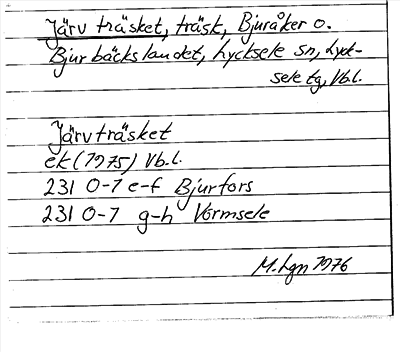 Järvträsket, träsk, Bjuråker o.
Bjurbäckslandet, Lycksele sn, Lyck-
sele tg, Vb.l.
Järvträsket
ek (1975) Vb.l.
231 0-1 e-f Bjurfors
231 0-1 g-h Vormsele
M. Lgn 1976